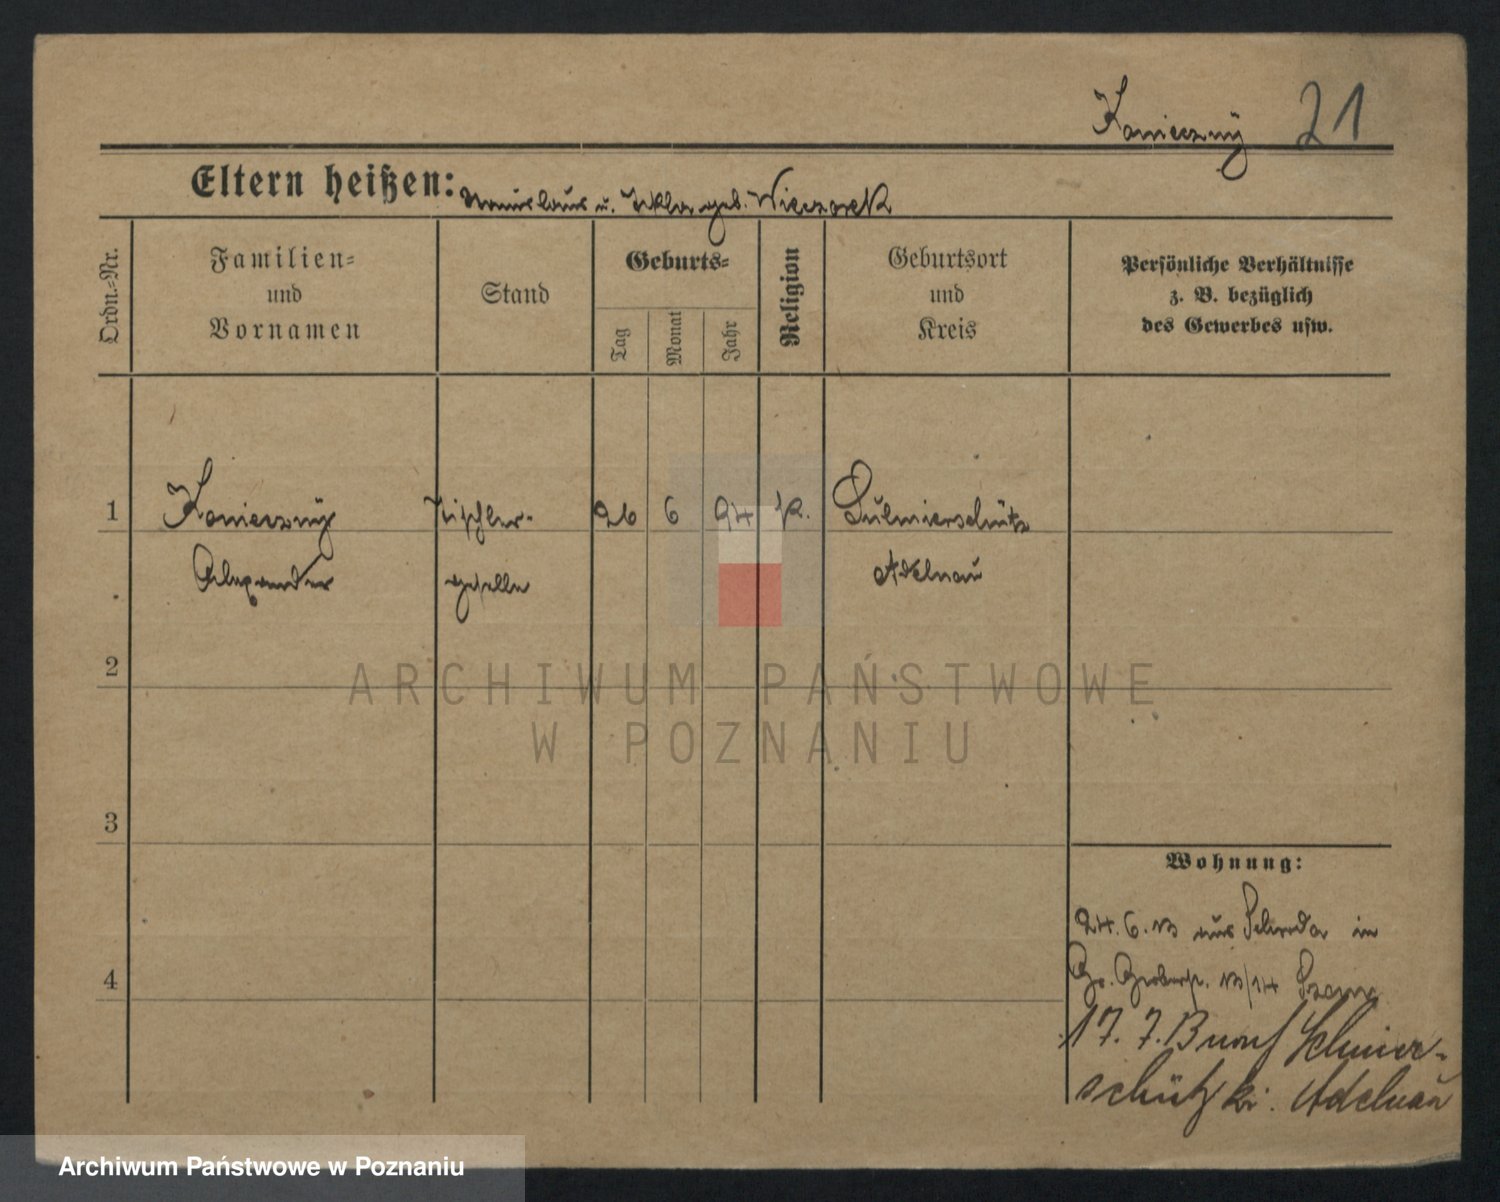 Konieczny 21
Eltern heißen: Stanislaus u. Thekla geb. Wieczorek
Ordn.-Nr.
Familien-
und
Vornamen
Stand
Geburts-
Tag
Monat
Jahr
Religion
Geburtsort
und
Kreis
Persönliche Verhältnisse
z. B. bezüglich
des Gewerbes usw.
1 Konieczny Tischler- 26 6 94 k. Sulmierschütz
Alexander geselle Adelnau
2
3
4
Wohnung:
24.6.13 aus Schroda in
Gr. 13/14
17. 7. 13 nach Sulmier-
schütz Kr. Adelnau
ARCHIWUM PAŃSTWOWE
W POZNANIU
Archiwum Państwowe w Poznaniu